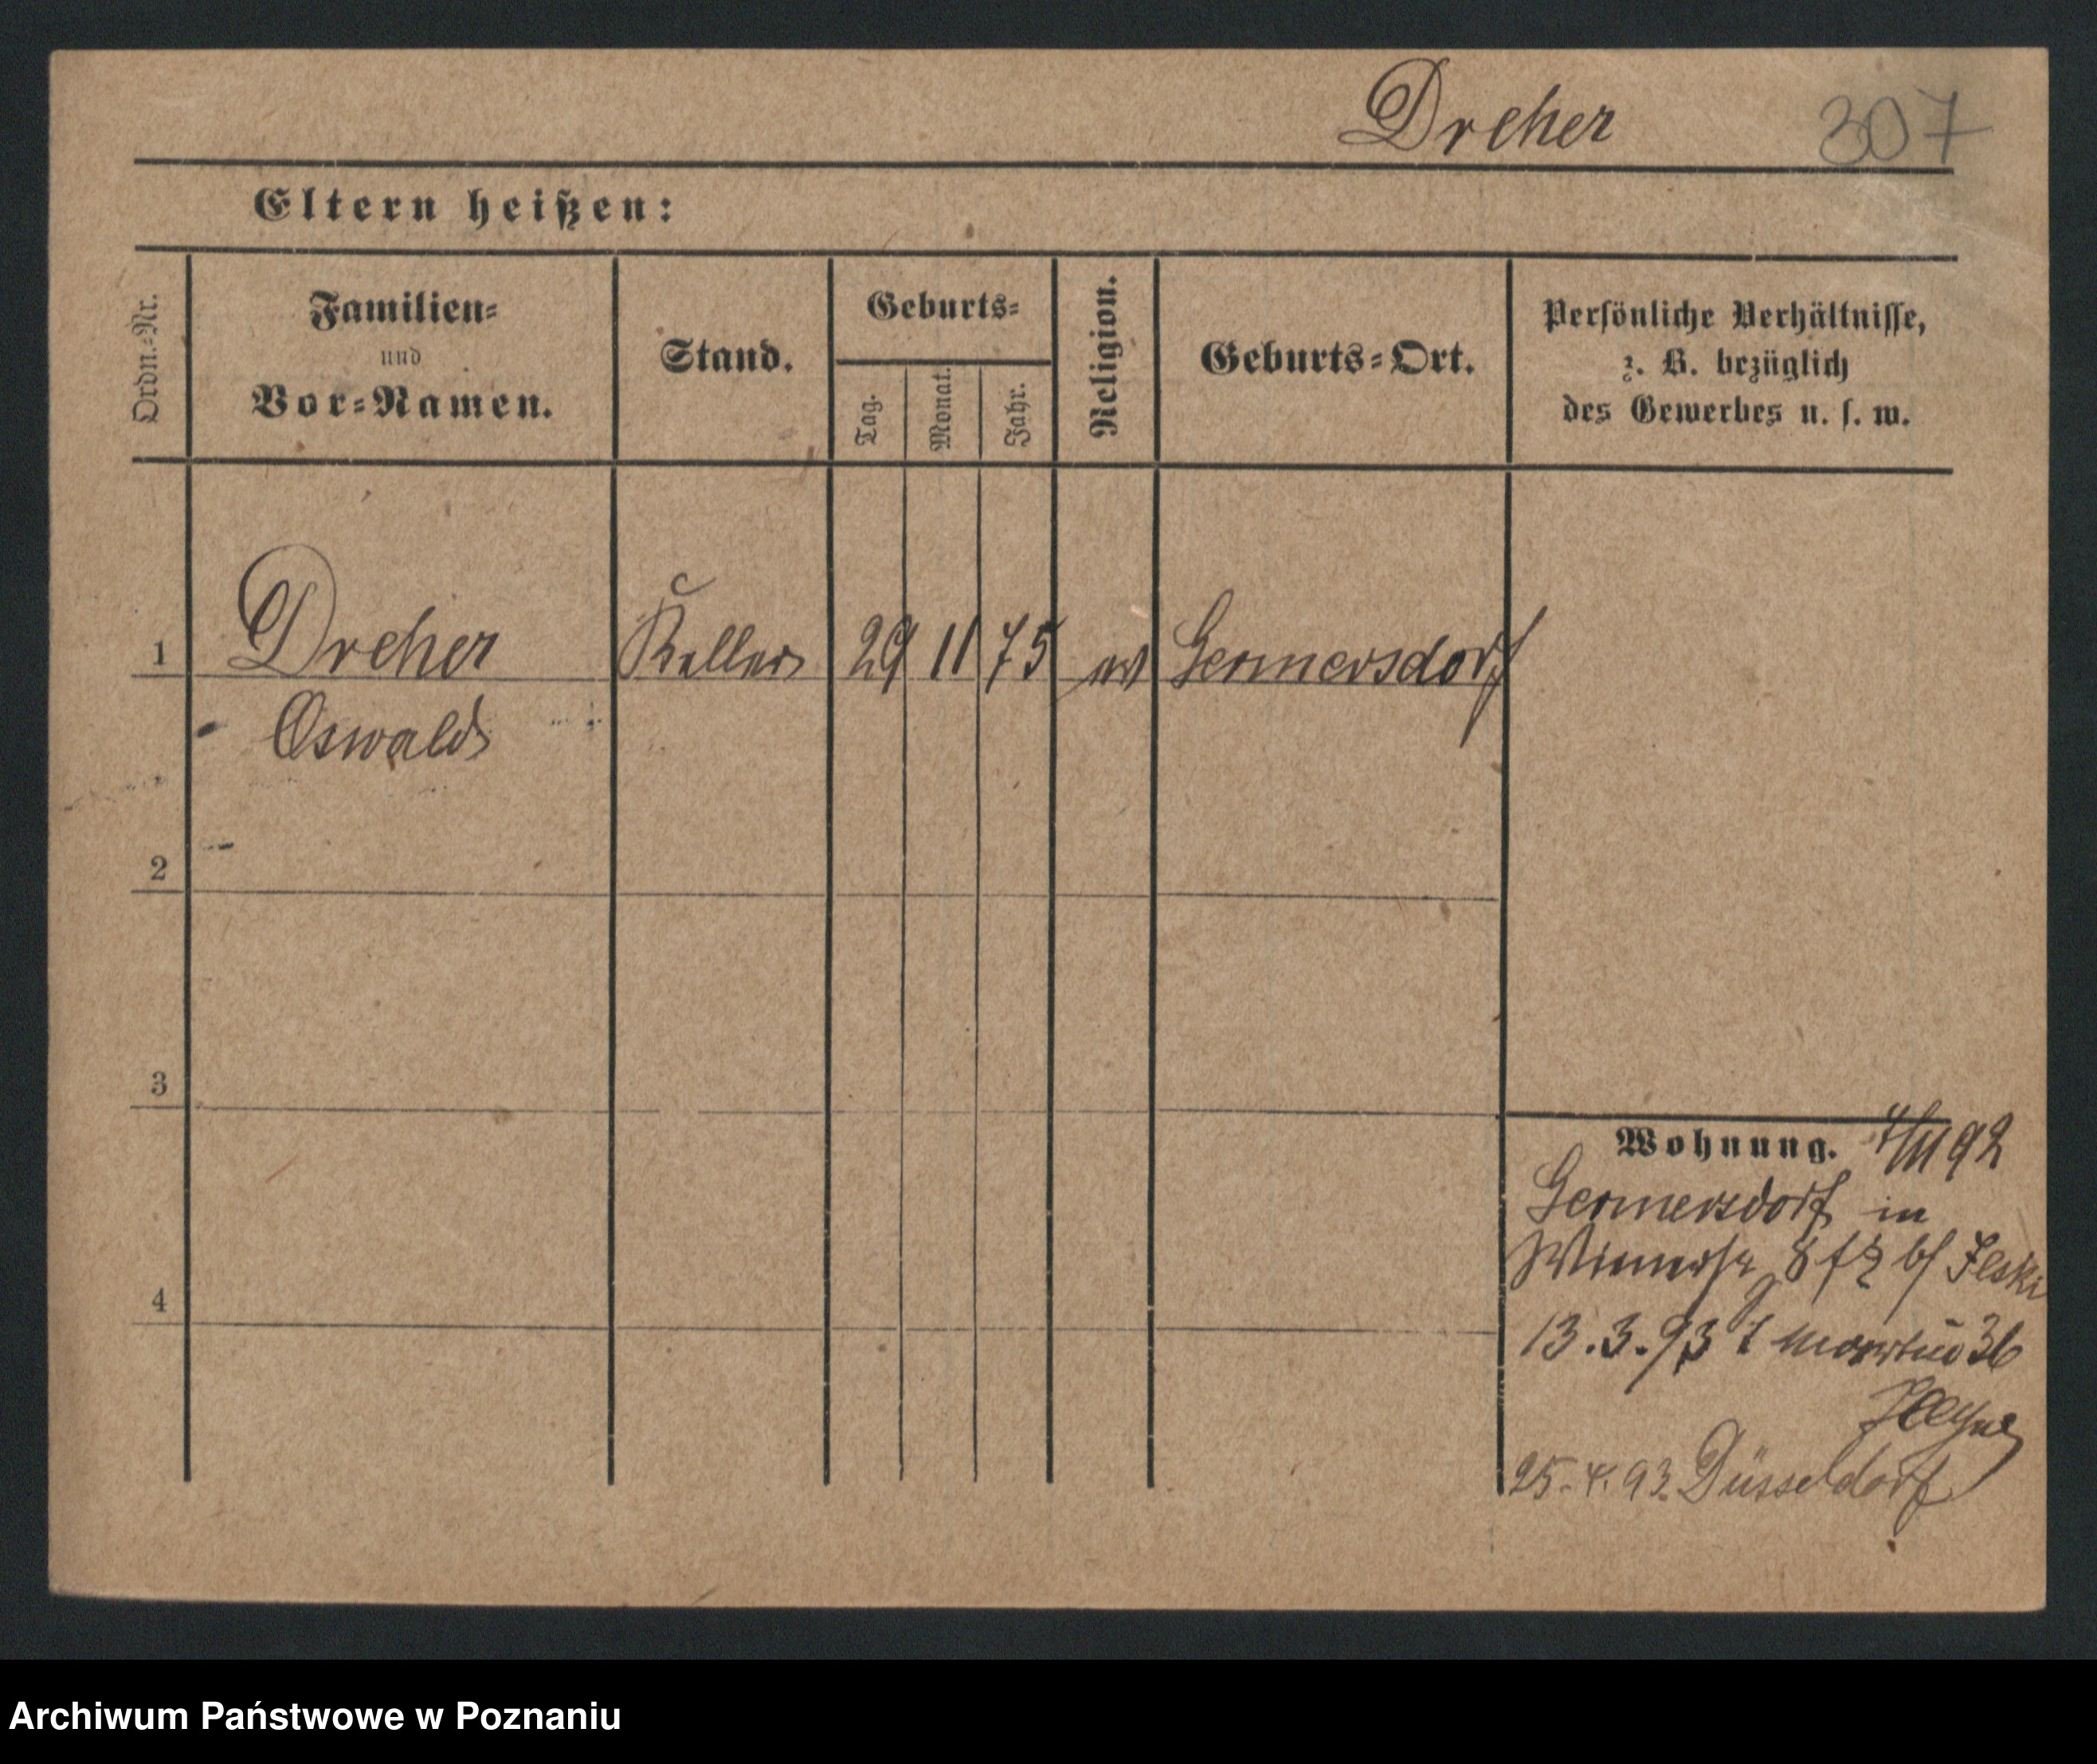 Dreher 307
Eltern heißen:
Ordn.-Nr.
Familien-
und
Vor-Namen.
Stand.
Geburts-
Tag.
Monat.
Jahr.
Religion.
Geburts-Ort.
Persönliche Verhältnisse,
z. B. bezüglich
des Gewerbes u. s. w.
1 Dreher 29 11 75 Germersdorf
Oswald
2
3
4
Wohnung. 92
Germersdorf in
8
13.3.93 36
25.4.93. Düsseldorf
Archiwum Państwowe w Poznaniu